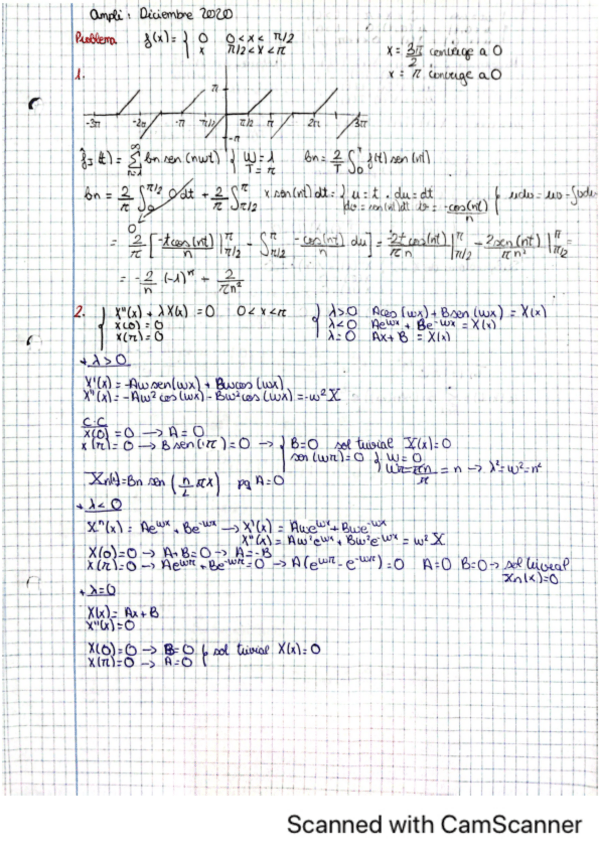 Ampli: Diciembre 2020
Problema f(x) = { 0 0<x<π/2
x π/2<x<π
x = 3π/2 converge a 0
x = π converge a 0
1.
π
-3π -2π -π -π/2 π/2 π 2π 3π
-π
(t) = ∑ bn sen (nwt) { W = 1 T = π bn = 2/T ∫ f(t) sen (nt)
bn = 2/π ∫ 0dt + 2/π ∫ x sen(nt)dt = { u = t . du = dt
dv = sen(nt)dt v = -cos(nt)/n { udv = uv - ∫vdu
0
= 2/π [ -t cos(nt)/n |π π/2 - ∫π π/2 -cos(nt)/n du ] = 2t cos(nt)/πn |π π/2 - 2sen(nt)/πn² |π π/2 =
= -2/n (-1)ⁿ + 2/πn²
2. { X''(x) + λX(x) = 0 0<x<π
X(0) = 0
X(π) = 0
{ λ>0 A cos(wx) + B sen(wx) = X(x)
λ<0 Ae^wx + Be^-wx = X(x)
λ=0 Ax + B = X(x)
+ λ>0
X'(x) = -Aw sen(wx) + Bw cos(wx)
X''(x) = -Aw² cos(wx) - Bw² cos(wx) = -w² X
C.C
X(0) = 0 → A = 0
X(π) = 0 → B sen(·π) = 0 → { B=0 sol trivial X(x) = 0
sen(wπ) = 0 { W = 0
Wπ = πn/π = n → λ² = w² = n²
Xn(x) = Bn sen (n/L πx) pq A=0
+ λ<0
X''(x) = Ae^wx + Be^-wx → X'(x) = Awe^wx + Bwe^-wx
X''(x) = Aw²e^wx + Bw²e^-wx = w² X
X(0)=0 → A+B=0 → A=-B
X(π)=0 → Ae^wπ + Be^-wπ = 0 → A(e^wπ - e^-wπ) = 0 A=0 B=0 → sol trivial
Xn(x)=0
+ λ=0
X(x) = Ax + B
X''(x) = 0
X(0)=0 → B=0 } sol trivial X(x) = 0
X(π)=0 → A=0
Scanned with CamScanner